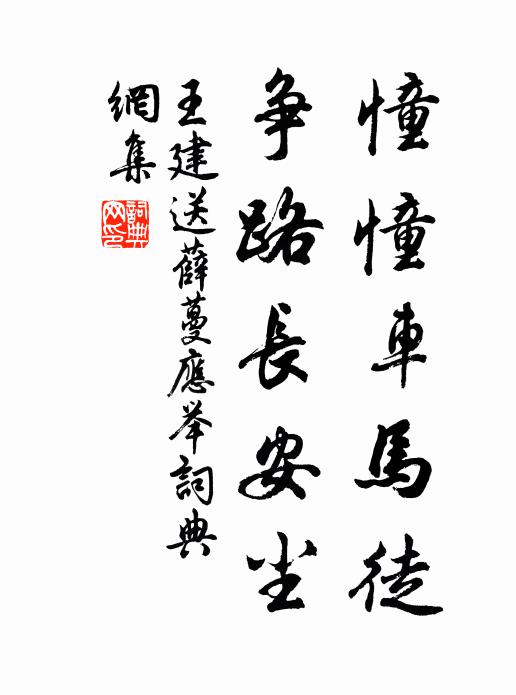 憧憧車馬徒
争路長安尘
王建送薛蔓應举詞典
網集
詞典网印